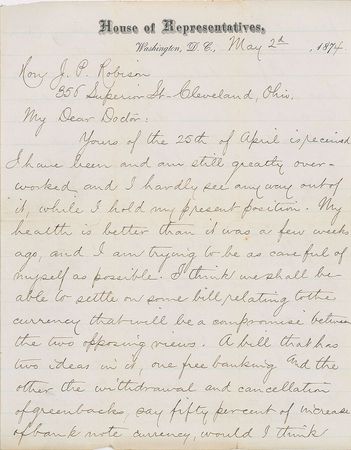 House of Representatives,
Washington, D. C., May 2d, 1874
Hon J. P. Robison
356 Superior St - Cleveland, Ohio.
My Dear Doctor:
Yours of the 25th of April is received
I have been and am still greatly over-
worked and I hardly see any way out of
it, while I hold my present position. My
health is better than it was a few weeks
ago, and I am trying to be as careful of
myself as possible. I think we shall be
able to settle on some bill relating to the
currency that will be a compromise between
the two opposing views. A bill that has
two ideas in it, one free banking and the
other the withdrawal and cancellation
of greenbacks, say fifty per cent of increase
of bank note currency, would I think